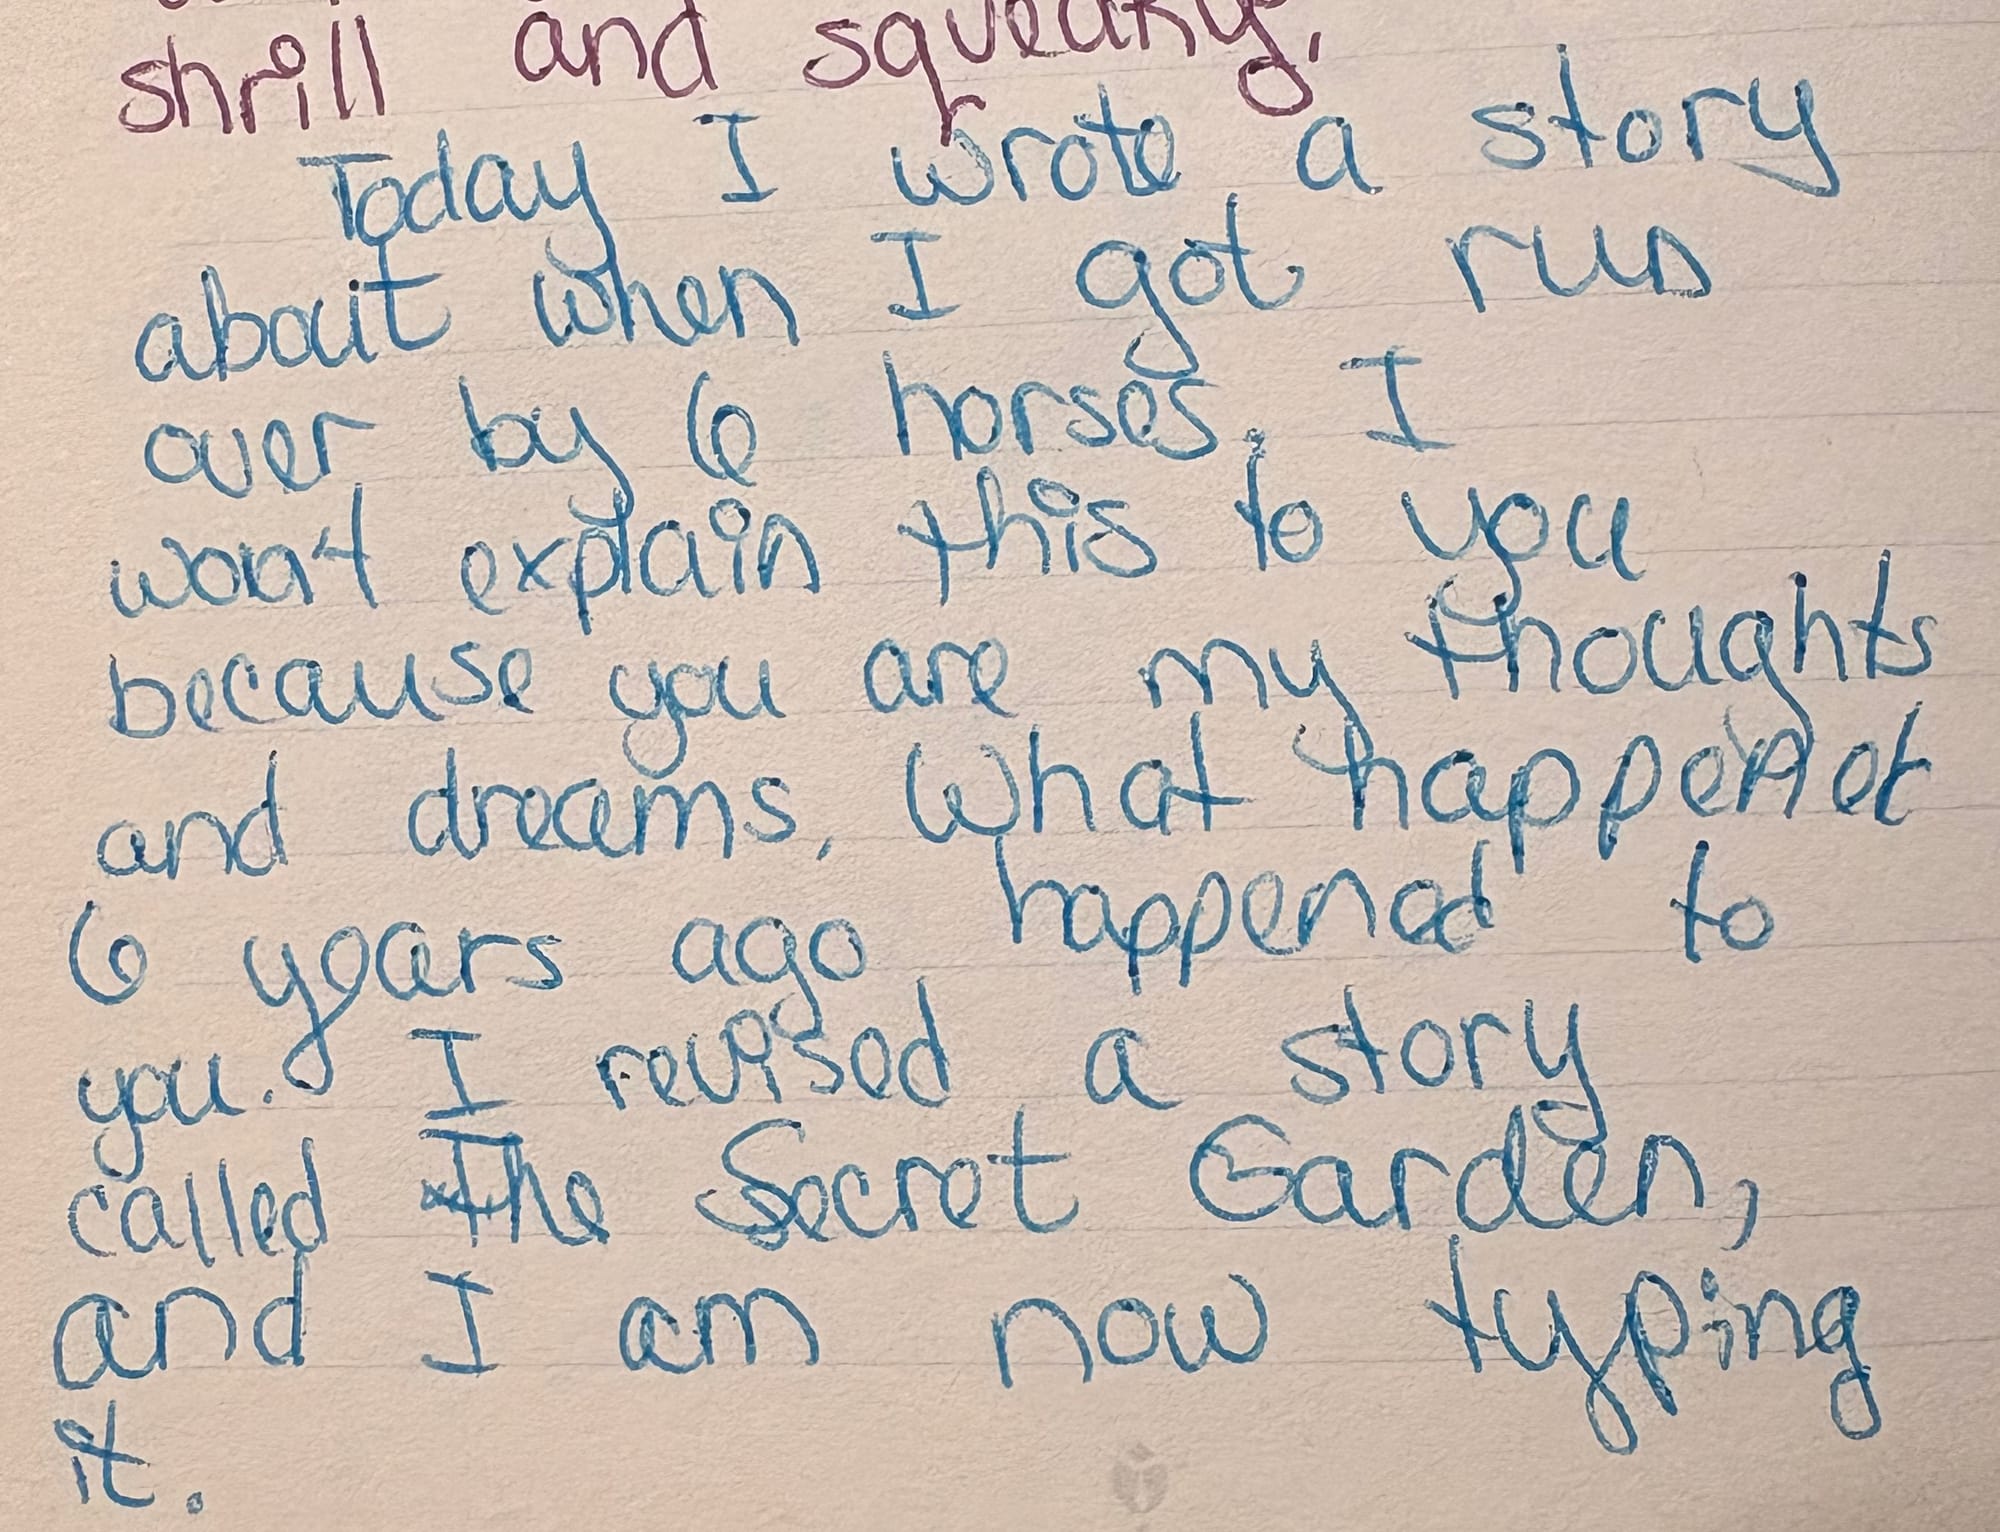 shrill and squeaky.
Today I wrote a story
about when I got run
over by 6 horses. I
won't explain this to you
because you are my thoughts
and dreams. What happened
6 years ago happened to
you. I revised a story
called The Secret Garden,
and I am now typing
it.